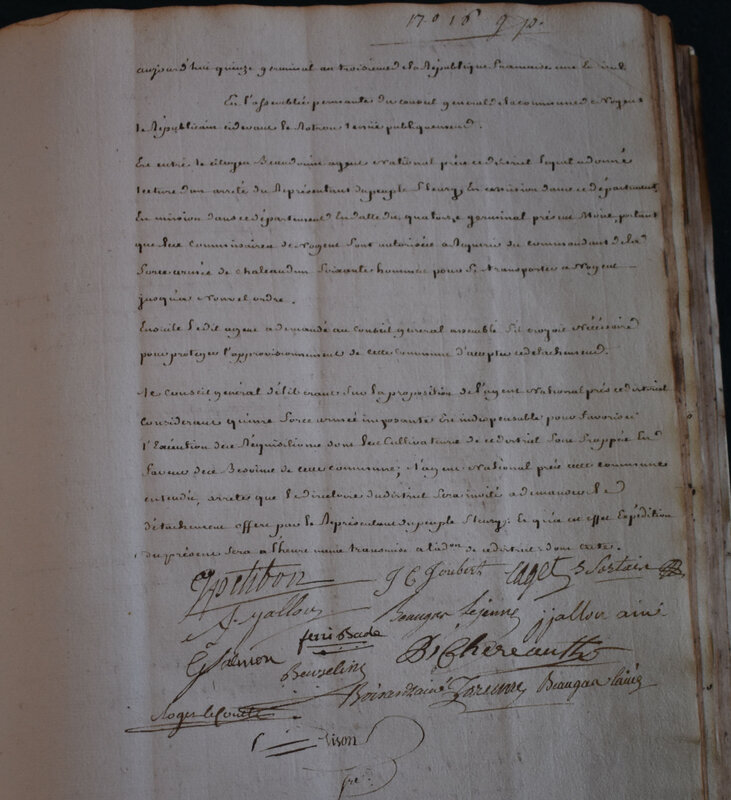 aujourd'hui quinze germinal an troisieme de la République francaise une et ind
En l'assemblée permanente du conseil general de la commune de Nogent
le Républicain cidevant le Rotrou tenüe publiquement.
Est entré le citoyen Beaudouin agent National près ce district lequel a donné
lecture d'un arrêté du Représentant du peuple fleury En mission dans ce département
En mission dans ce département En datte du quatorze germinal présent Mois, portant
que les Commissaires de Nogent sont autorisés a Requerir du commandant de la
force armée de chateaudun soixante hommes pour se transporter a Nogent
jusqu'a nouvel ordre.
Ensuite ledit agent a demandé au Conseil general assemblé s'il croyoit Nécéssaire
pour proteger l'approvisionnement de cette commune d'accepter ce detachement.
le Conseil général déliberant sur la proposition de l'agent National près ce district
Considerant qu'une force armée imposante est indispensable pour favoriser
l'Exécution des Réquisitions dont les Cultivateurs de ce district sont frappés En
faveur des Besoins de cette commune; l'agent National près cette commune
entendu, arrête que le directoire du district sera invité a demander le
détachement offert par le Représentant du peuple fleury; Et qu'a cet effet Expédition
du présent sera a l'heure meme transmise a l'adon de ce district: dont acte.
Petitbon J C Joubert Laget Sortais
J. Jallou Beaugas lejeune jjallou ainé
G Salmon ferré Bade B Chereauth
Beuzelin
Roger le Comte Boisard ainé Lorenne Beaugas lainé
ison
gre.